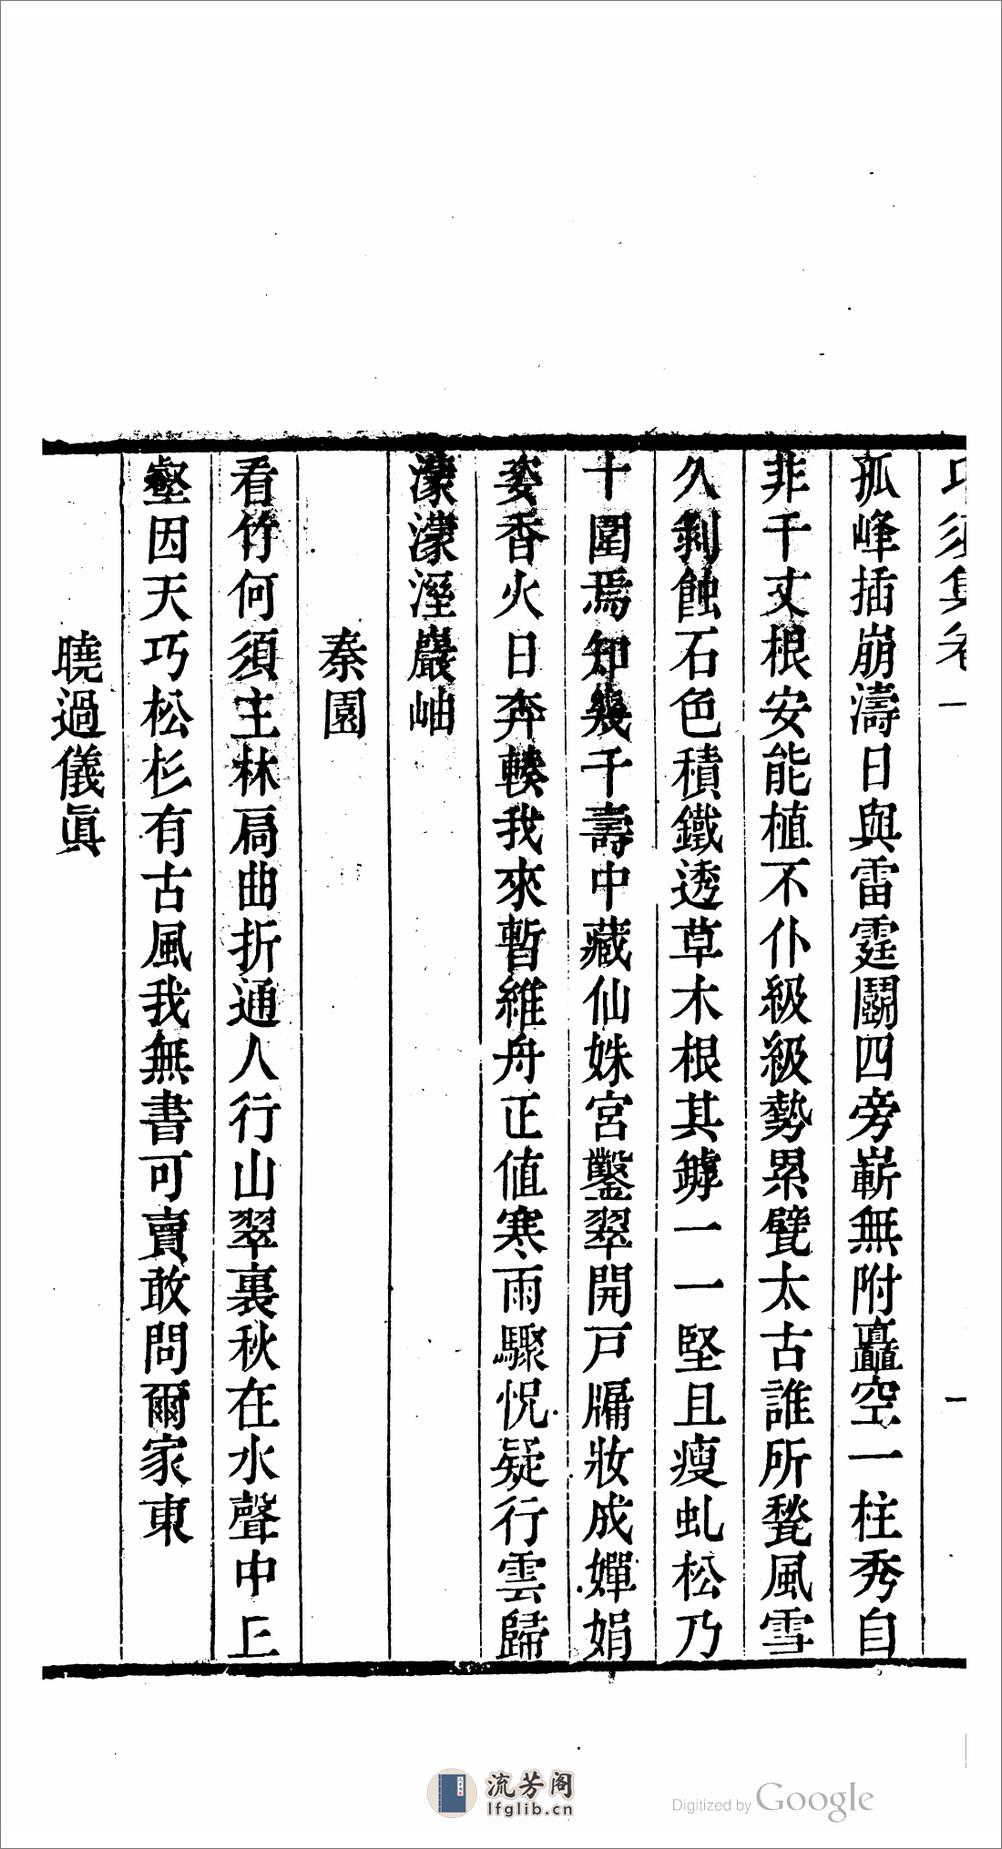 卭須集卷一　一
孤峰插崩濤日與雷霆鬭四旁嶄無附矗空一柱秀自
非千丈根安能植不仆級級勢累甓太古誰所甃風雪
久剝蝕石色積鐵透草木根其罅一一堅且瘦虬松乃
十圍焉知幾千壽中藏仙姝宮鑿翠開戸牖妝成嬋娟
姿香火日奔輳我來暫維舟正值寒雨驟怳疑行雲歸
濛濛溼巖岫
秦園
看竹何須主林扃曲折通人行山翠裏秋在水聲中上
壑因天巧松杉有古風我無書可賣敢問爾家東
曉過儀眞
流芳阁
lfglib.cn
Digitized by Google